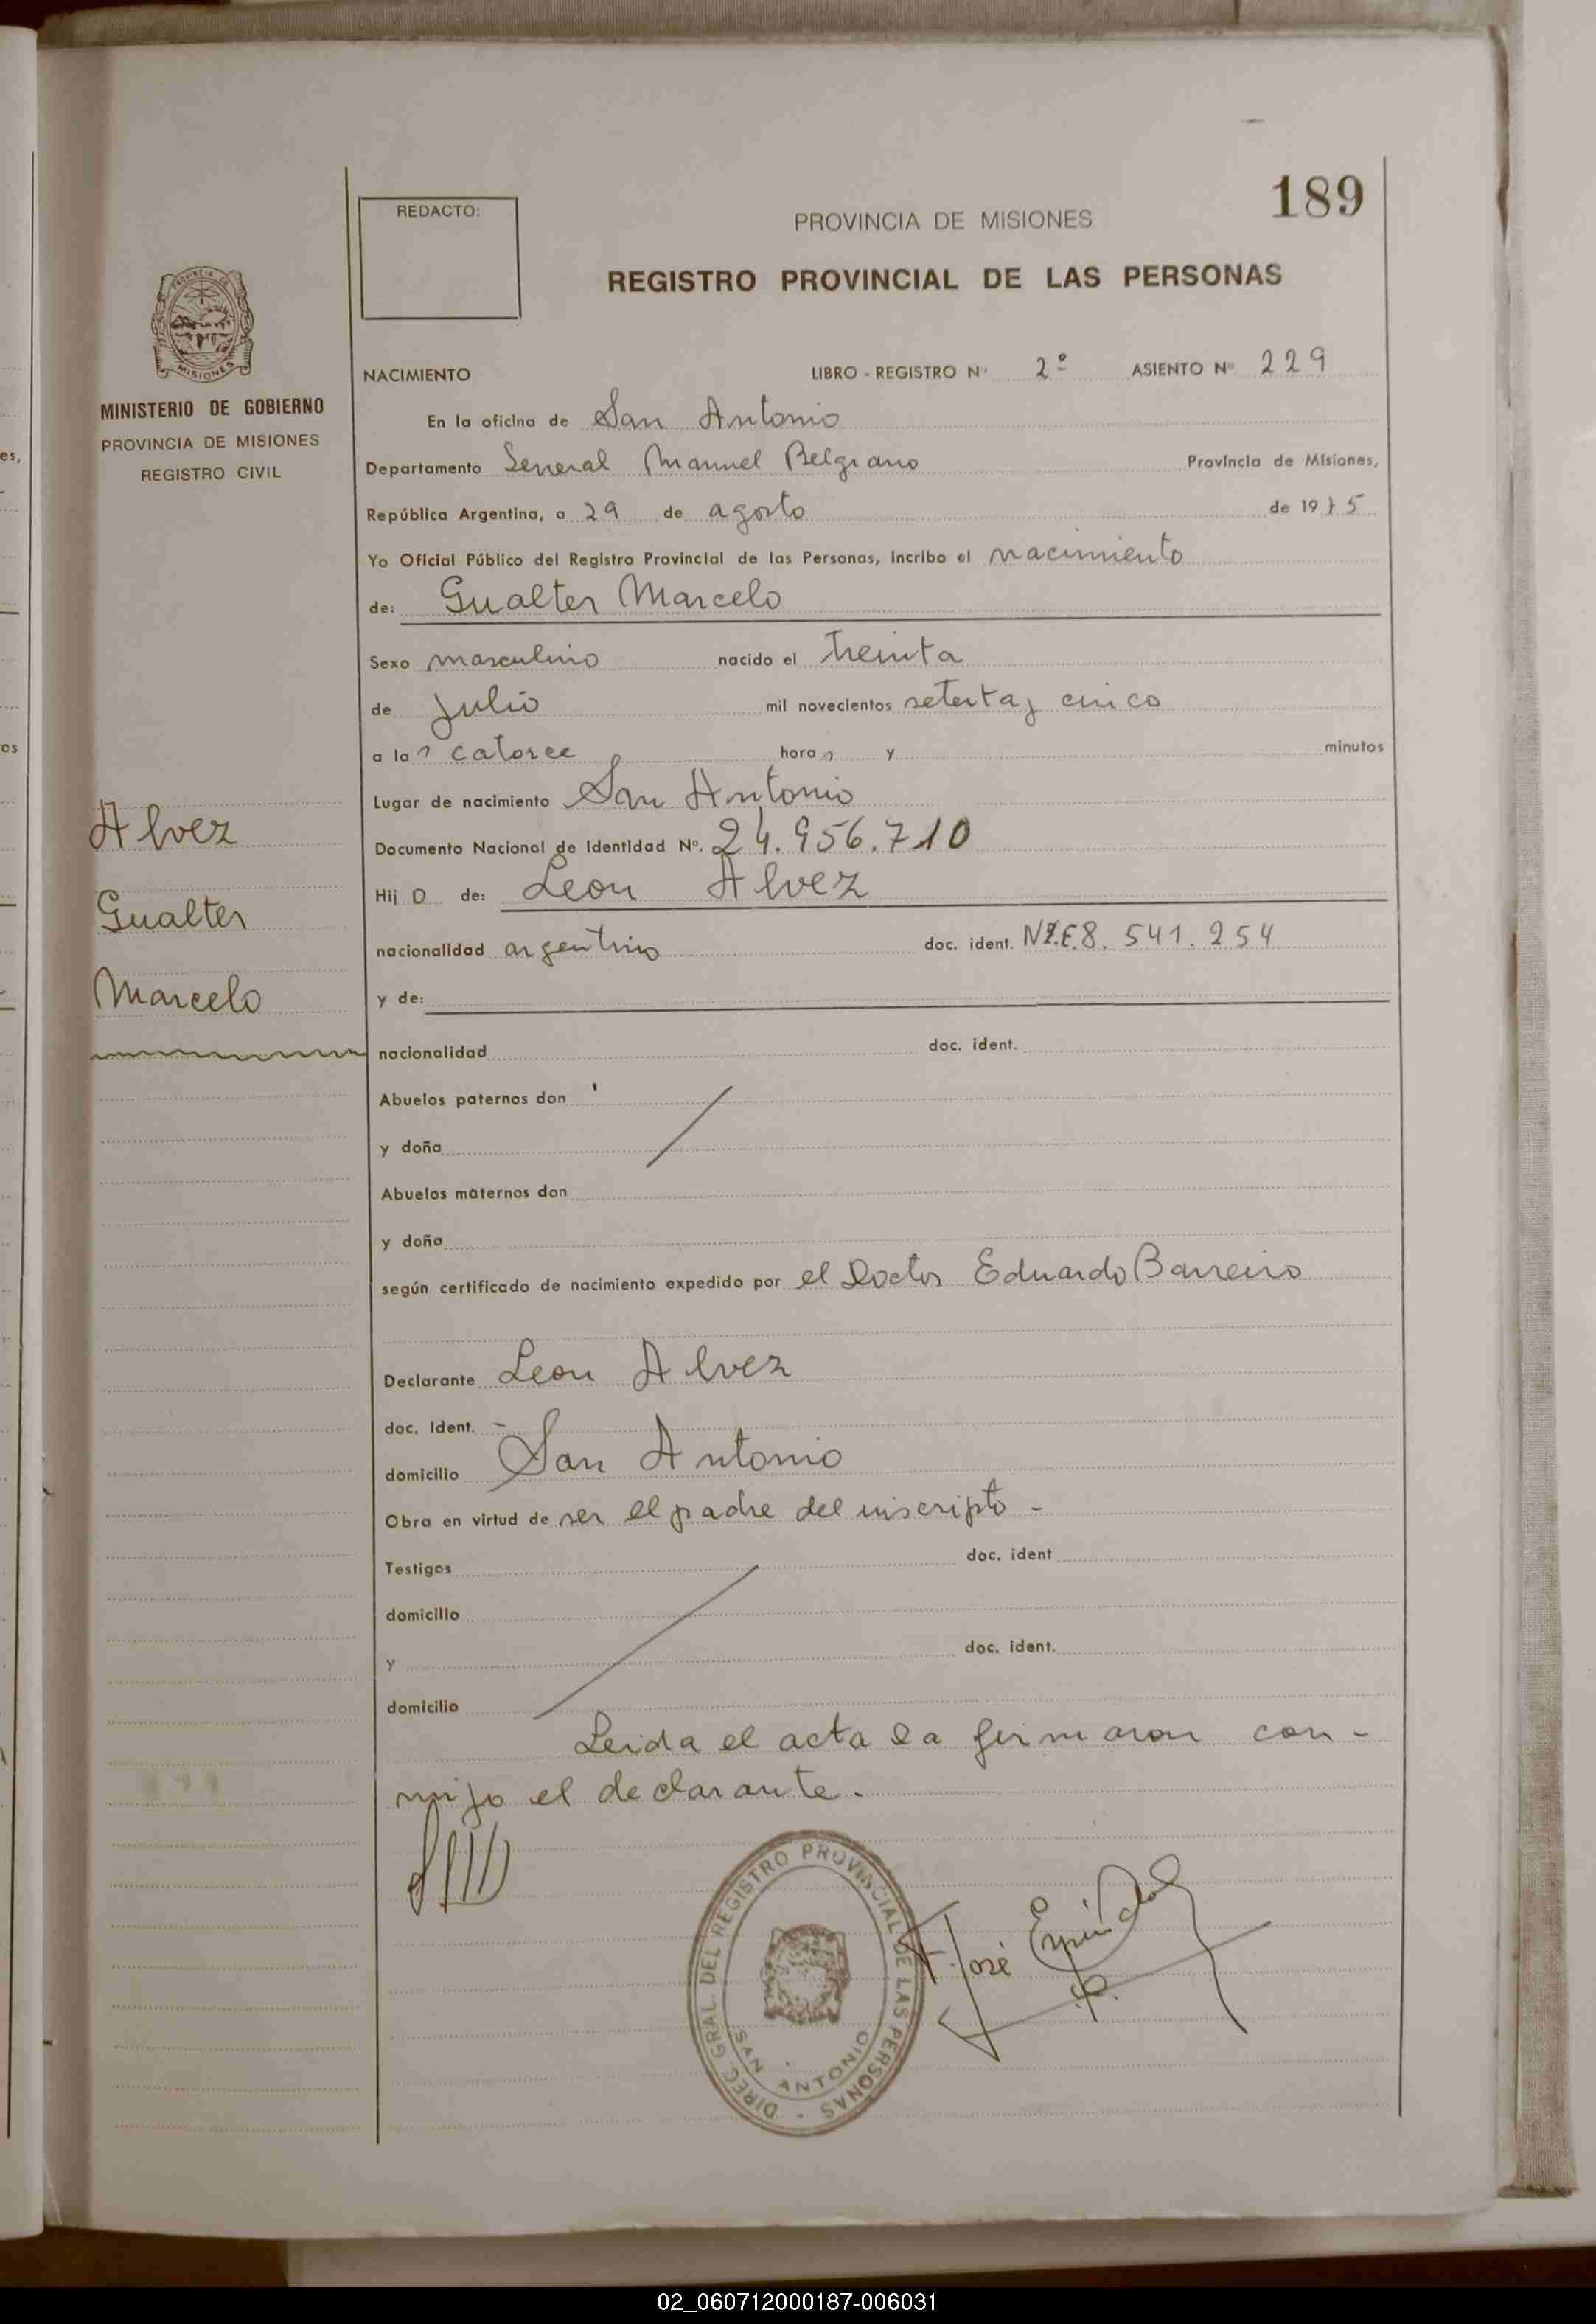 189
REDACTO:
PROVINCIA DE MISIONES
REGISTRO PROVINCIAL DE LAS PERSONAS
PROVINCIA DE
MISIONES
MINISTERIO DE GOBIERNO
PROVINCIA DE MISIONES
REGISTRO CIVIL
NACIMIENTO LIBRO - REGISTRO Nº 2º ASIENTO Nº 229
En la oficina de San Antonio
Departamento General Manuel Belgrano Provincia de Misiones,
República Argentina, a 29 de agosto de 1975
Yo Oficial Público del Registro Provincial de las Personas, incribo el nacimiento
de: Gualter Marcelo
Sexo masculino nacido el treinta
de julio mil novecientos setenta y cinco
a las catorce horas y minutos
Lugar de nacimiento San Antonio
Documento Nacional de Identidad Nº. 24.956.710
Hijo de: Leon Alvez
nacionalidad argentino doc. ident. 8.541.254
y de:
nacionalidad doc. ident.
Abuelos paternos don
y doña
Abuelos maternos don
y doña
según certificado de nacimiento expedido por el Doctor Eduardo Barreiro
Declarante Leon Alvez
doc. Ident. -
domicilio San Antonio
Obra en virtud de ser el padre del inscripto -
Testigos doc. ident
domicilio
y doc. ident.
domicilio
Leida el acta la firmaron con-
migo el declarante.
Alvez
Gualter
Marcelo
DIREC. GRAL. DEL REGISTRO PROVINCIAL DE LAS PERSONAS -
SAN ANTONIO
José
es,
os
02_060712000187-006031